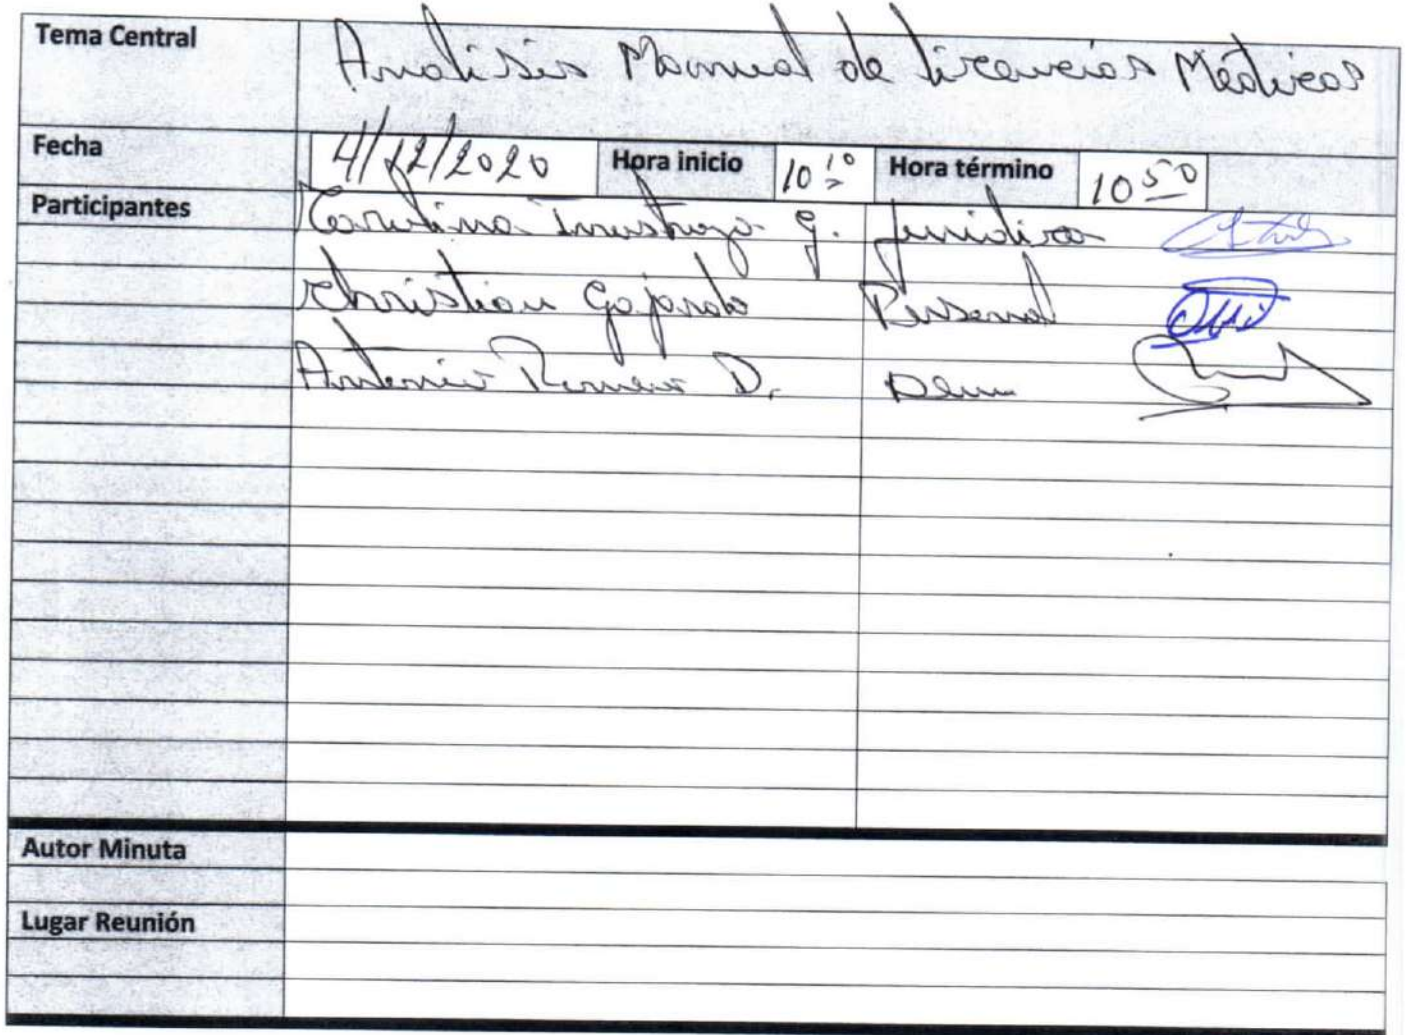 Tema Central Analisis Manual de Licencias Médicas
Fecha 4/12/2020 Hora inicio 10 10 Hora término 10 50
Participantes Carolina Inostroza G. Juridica
Christian Gajardo Personal
Antonio Romero D. Dem
Autor Minuta
Lugar Reunión